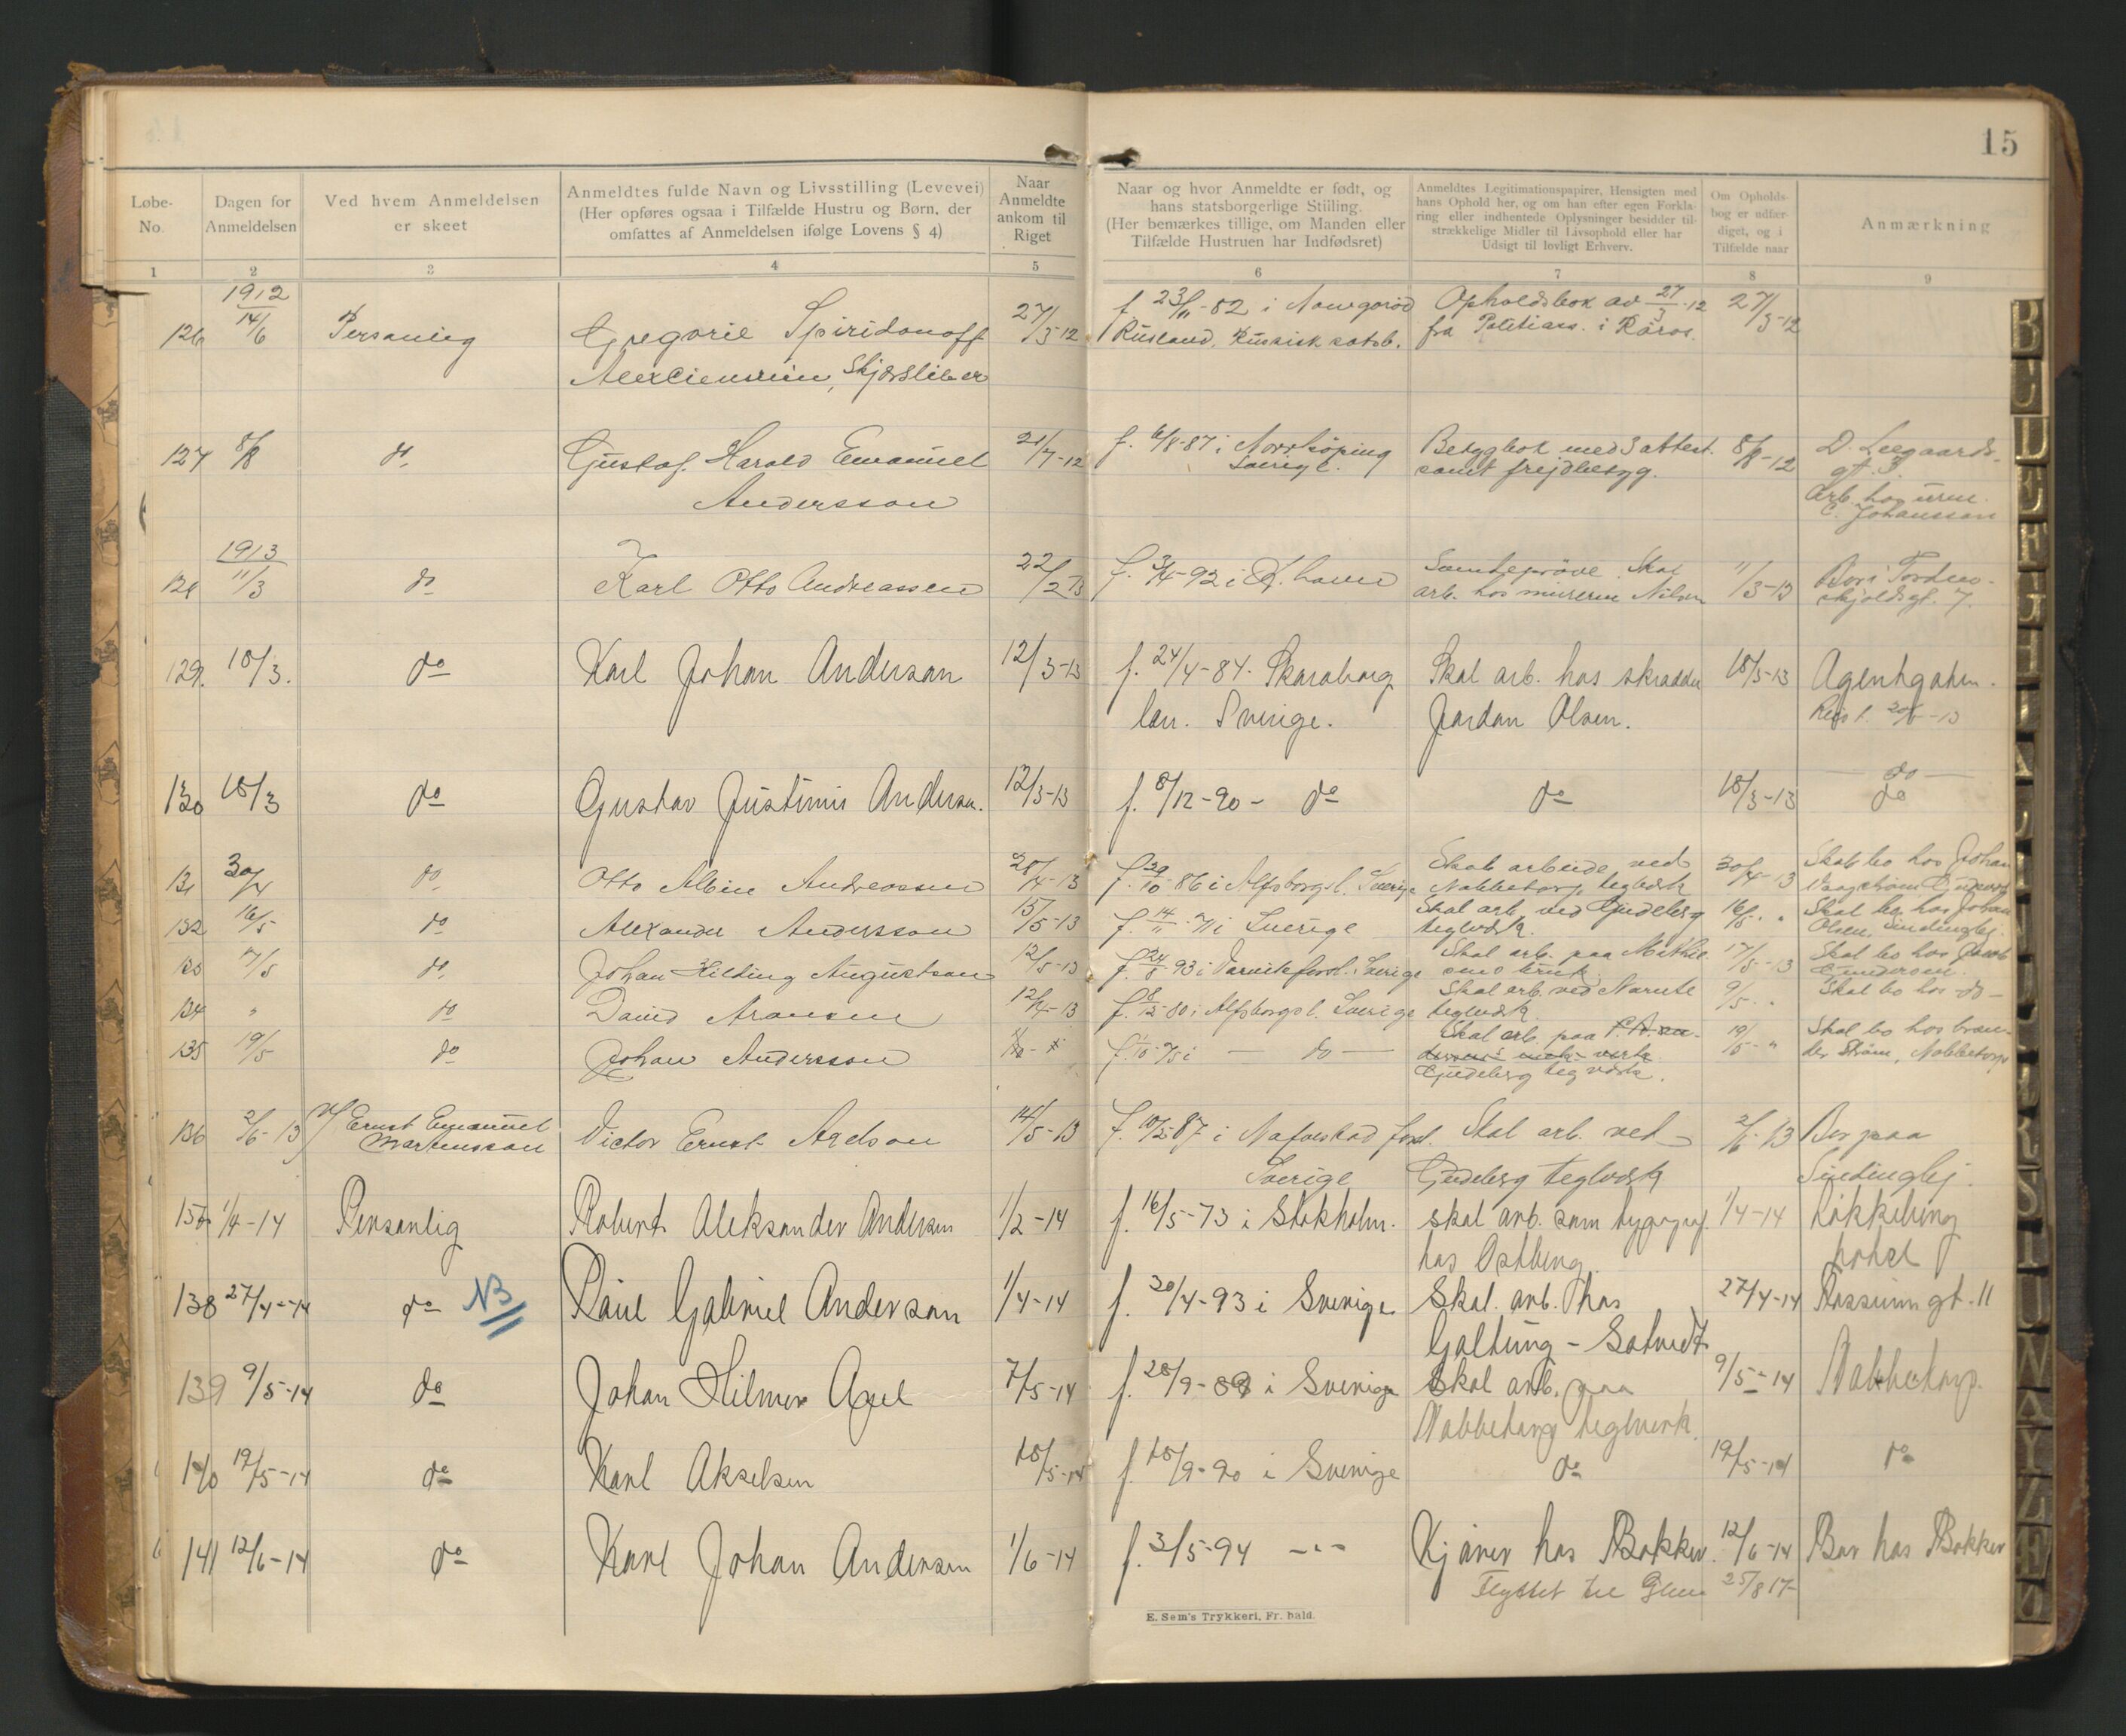 15
Løbe-
No.
Dagen for
Anmeldelsen
Ved hvem Anmeldelsen
er skeet
Anmeldtes fulde Navn og Livsstilling (Levevei)
(Her opføres ogsaa i Tilfælde Hustru og Børn, der
omfattes af Anmeldelsen ifølge Lovens § 4)
Naar
Anmeldte
ankom til
Riget
Naar og hvor Anmeldte er født, og
hans statsborgerlige Stilling.
(Her bemærkes tillige, om Manden eller
Tilfælde Hustruen har Indfødsret)
Anmeldtes Legitimationspapirer, Hensigten med
hans Ophold her, og om han efter egen Forkla-
ring eller indhentede Oplysninger besidder til-
strækkelige Midler til Livsophold eller har
Udsigt til lovligt Erhverv.
Om Opholds-
bog er udfær-
diget, og i
Tilfælde naar
Anmærkning
1 2 3 4 5 6 7 8 9
1912
126 14/6 Personlig Gregorie Spiridonoff 27/3-12 f. 23/11-82 i Nowgorod Opholdsbok av 27/3-12 27/3-12
Skjærsliber Rusland, Russisk statsb. fra Politiem. i Röros.
127 8/8 do Gustaf Harald Emanuel 21/7-12 f. 6/8-87 i Norrköping Betygbok med 3 attest. 8/8-12 D. Leegaards-
Andersson Sverige. samt frejdbetyg. gt. 3.
Arb. hos urm.
C. Johansson
1913
128 11/3 do Karl Otto Andreassen 22/2-13 f. 3/4-92 i K.havn Svendeprøve. Skal 11/3-13 Bor i Torden-
arb. hos murerm. Nilsen skjoldsgt. 7.
129. 18/3. do Karl Johan Anderson 12/3-13 f. 24/4-84. Skaraborg Skal arb. hos skrædder 18/3-13 Agentgaten.
län. Sverige. Jordan Olsen. Reist
130 18/3 do Gustav Justinus Anderson. 12/3-13 f. 8/12-90 - do do 18/3-13 do
do
131 30/4 do Otto Albin Andreassen 28/4-13 f. 29/10-86 i Alfsborgs l. Sverige Skal arbeide ved 30/4-13 Skal bo hos Johan
Nabbetorp teglværk
132 16/5 do Alexander Andersson 15/5-13 f. 14/11-71 i Sverige Skal arb. ved Gudeberg 16/5 " Skal bo hos Johan
teglværk. Olsen, Sindinglej.
133 7/5 do Johan Hilding Augustson 12/5-13 f. 24/5-93 i Sverige Skal arb. paa Mathie- 17/5-13 Skal bo hos Jacob
sens bruk. Gundersen.
134 " do David Aronsen 12/4-13 f. 8/12-80 i Alfsborgs l. Sverige Skal arb. ved Narnte 9/5 " Skal bo hos do
teglværk.
135 19/5 do Johan Andersson f. 1/10-75 i do Skal arb. paa 19/5 " Skal bo hos
Gudeberg teglværk. Strøm, Nabbetorp
136 2/6-13 v/ Ernst Emanuel Victor Ernst Axelson 14/5-13 f. 10/5-87 i Skal arb. ved 2/6-13 Bor paa
Martensson Sverige Gudeberg teglværk Sindinglej.
1/4-14 Personlig Robert Aleksander Andersen 1/2-14 f. 16/5-73 i Stokholm. skal arb. som typograf 1/4-14 Løkkeberg
hos Østberg. hotel
138 27/4-14 do NB Paul Gabriel Anderson 1/4-14 f. 30/4-93 i Sverige Skal. arb. hos 27/4-14 gt. 11
Galtung -
139 9/5-14 do Johan Hilmer Axel 7/5-14 f. 28/9-89 i Sverige Skal arb. paa 9/5-14 Nabbetorp.
Nabbetorp teglverk.
140 19/5-14 do Karl Akselsen 18/5-14 f. 18/9-90 i Sverige do 19/5-14 do
141 12/6-14 do Karl Johan Andersen 1/6-14 f. 3/5-94 -"- Kjører hos Bakker. 12/6-14 Bor hos Bakker
Flyttet til Glem 25/8 17-
E. Sem's Trykkeri, Fr. hald.